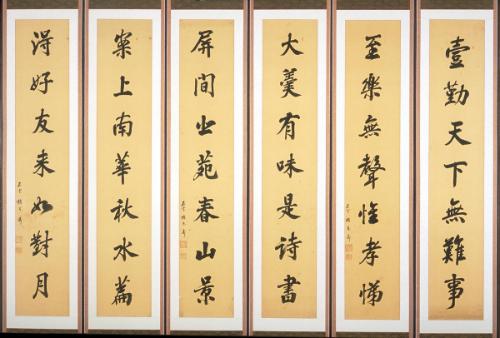 壹勤天下無難事
至樂無聲惟孝悌
大羹有味是詩書
屏間北苑春山景
案上南華秋水篇
得好友来如對月